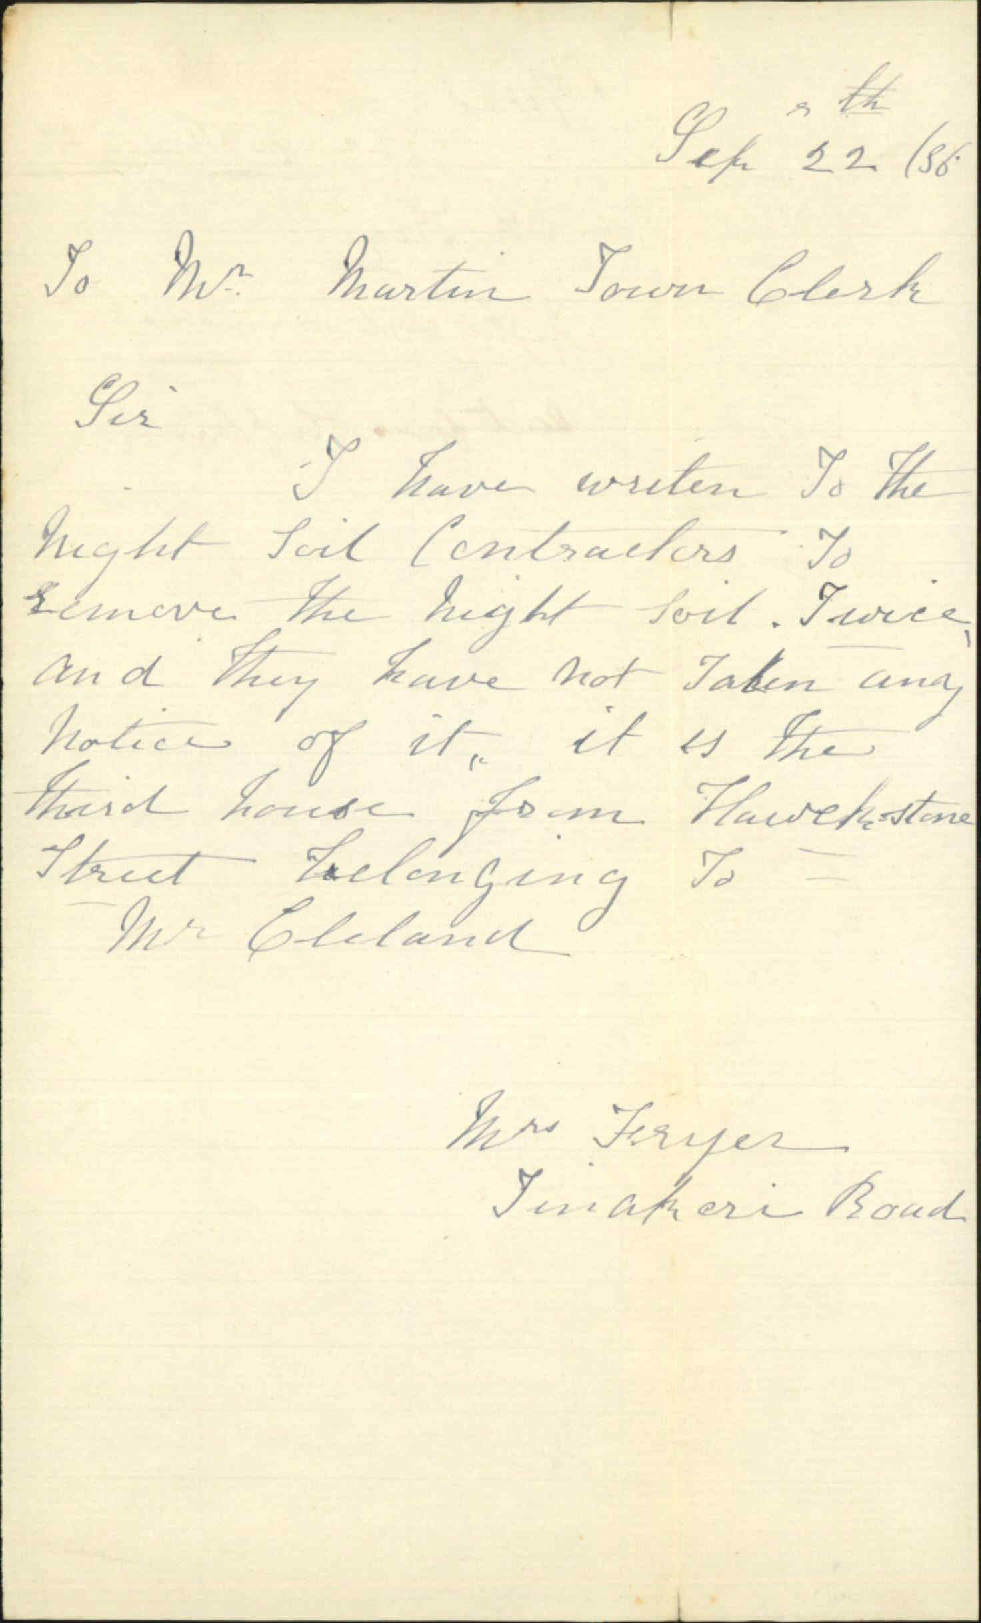 Sep 22th /86
To Mr. Martin Town Clerk
Sir
I have writen To The
Night Soil Contractors To
remove the Night Soil. Twice,
and they have not Taken any
Notice of it,, it is The
third house from Hawekstone
Street belonging To =
Mr Cleland
Mrs Fryer
Tinakeri Road